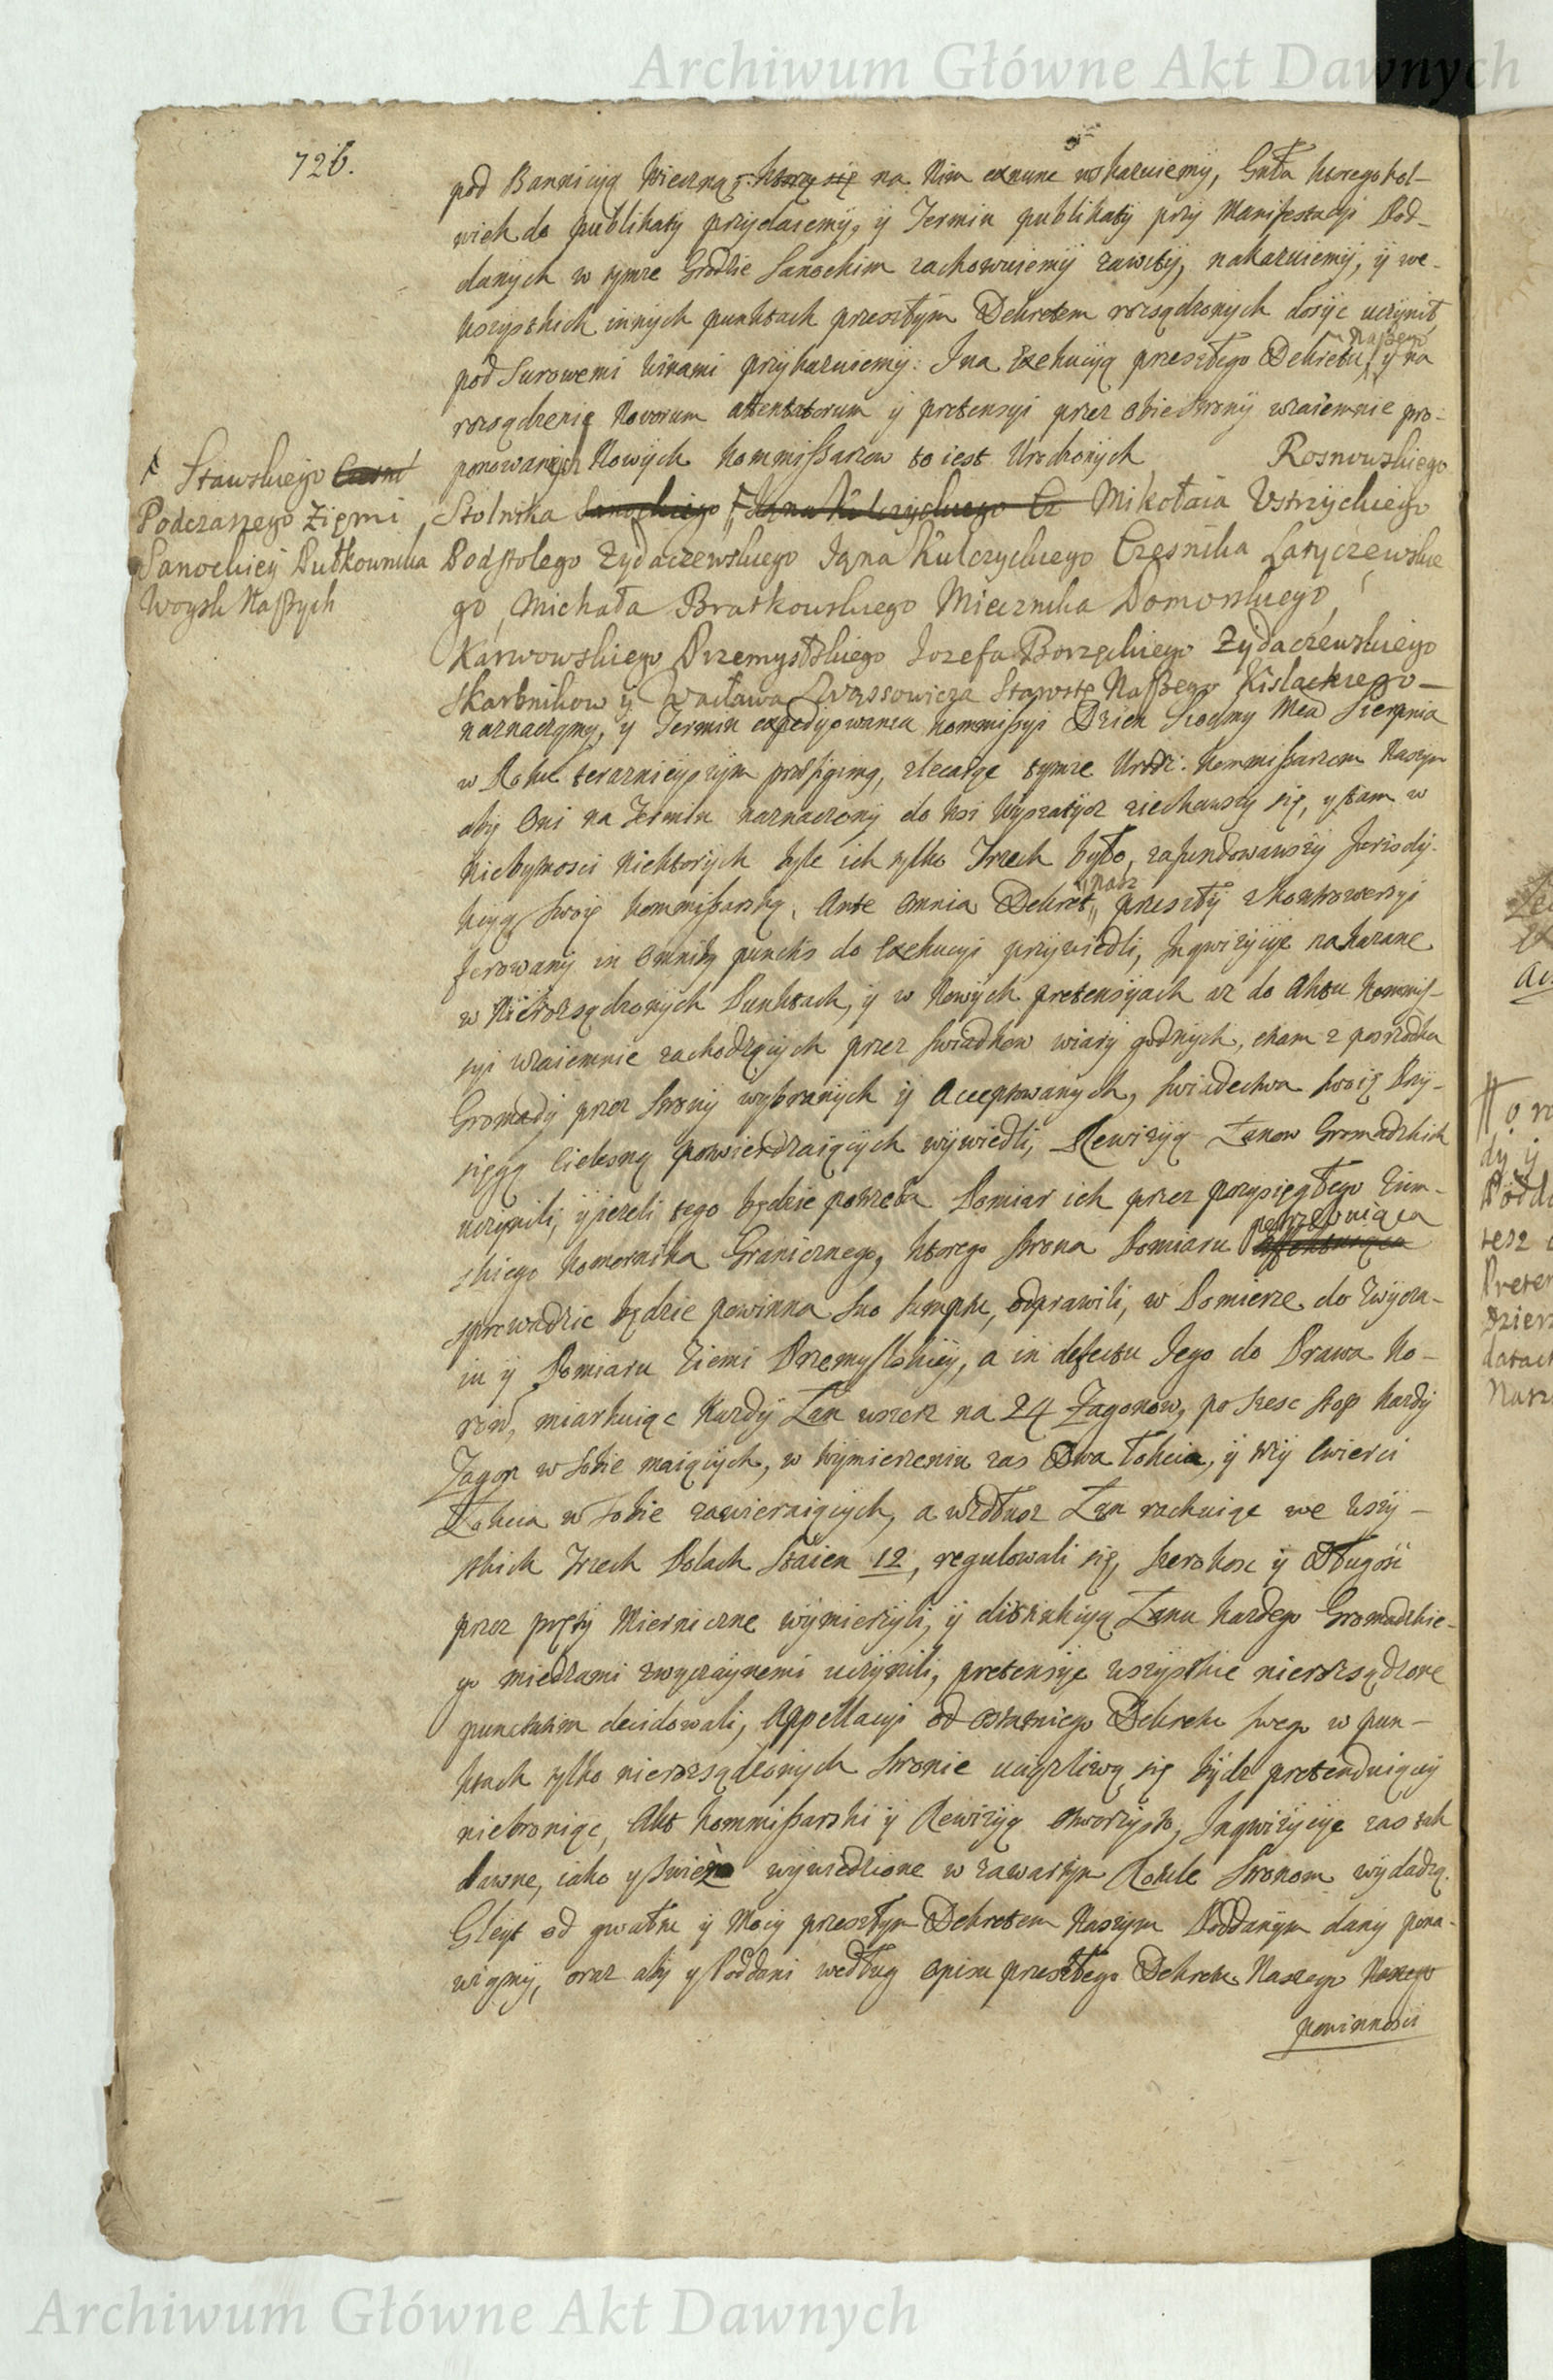 Archiwum Główne Akt Dawnych
726.
pod Bannicyą Wieczną, ktorą się na Nim exnunc wskazuiemy, Gnła ktoregokol-
wiek do publikaty przydaiemy, y Termin publikaty przy Manifestacyi Pod-
danych w tymze Grodzie Sanockim zachowuiemy zawity, nakazuiemy, y we-
wszystkich innych punktach przeszłym Dekretem rozsądzonych dosyc uczynił,
pod Surowemi winami przykazuiemy: Ina Exekucyą przeszłego Dekretu Naßego y na
rozsądzenie Novorum attentatorum y pretensyi przez obie Strony wzaiemnie pro-
ponowanych Nowych Kommißarzow to iest Urodzonych Rosnowskiego
Stolnika Sanockiego, Jana Kulczyckiego Cz Mikołaia Ustrzyckiego
Ꞙ Stawskiego Czesni
Podczaszego Ziemi
Sanockiey Pułkownika
Woysk Naßych
Podstolego Zydaczewskiego Jana Kulczyckiego Cześnika Latyczewskie
go, Michała Bratkowskiego Miecznika Domowskiego,
Karwowskiego Przemyslskiego Jozefa Borzęckiego Zydaczewskiego
Skarbnikow y Wacława Starostę Naßego Kislackiego
naznaczamy, y Termin expedyowania Kommißyi Dzien Siodmy Mca Sierpnia
w Roku teraznieyszym prefigimy, zlecaiąc tymze Urodz: Kommißarzom Naszym
aby Oni na Termin naznaczony do Wsi Wyszatycz ziechawszy się, y tam w
niebytnosci Niektorych byle ich tylko Trzech było, zafundowawszy Jurisdy-
kcyą Swoię Kommißarską, Ante Omnia Dekret nasz przeszły z Kontrowersyi
ferowany in Omnibus punctis do Exekucyi przywiedli, Inqwizycye nakazane
w Nierozsądzonych Punktach, y w Nowych pretensyiach az do Aktu Kommis-
syi wzaiemnie zachodzących przez Swiadkow wiary godnych, enam z posrzodka
Gromady przez Strony wybranych y Acceptowanych, Swiadectwa Swoię Przy-
sięgą Cielesną powierdzaiących wywiedli, Rewizyą Łanow Gromadzkich
uczynili, y ieżeli tego będzie potrzeba Pomiar ich przez przysięgłego Ziem-
skiego Komornika Granicznego, ktorego Strona Pomiaru potrzebuiąca
sprowadzic będzie powinna Suo Sumptu, odprawili, w Pomierze do Zwycza-
iu y Pomiaru Ziemi Przemyslskiey, a in defectu Jego do Prawa Ko-
ron, miarkuiąc Kazdy Łan wszerz na 24 Zagonow, po szesc stop kazdy
Zagon w sobie maiących, w Wymierzeniu zas Dwa łokcia, y trzy Cwierci
Łokcia w sobie zawieraiących, a wzdłuz Łan rachuiąc we wszy-
stkich Trzech Polach Staien 12, regulowali się, Szerokosc y Długość
przez pręty Miernicze wymierzyli, y distinkcyą Łanu kazdego Gromadzkie-
go miedzami zwyczaynemi uczynili, pretensye wszystkie nierozsądzone
punctatim decidowali, Appellacyi od ostatniego Dekretu swego w pun-
ktach tylko nierozsądzonych Stronie uciązliwą się bydz pretenduiącey
niebroniąc, Akt Kommißarski y Rewizyą otworzysto, Inqwizycye zas tak
dawne, iako y swieżo wywiedzione w zawartym Rotule Stronom wydadzą.
Gleyt od gwałtu y Mocy przeszłym Dekretem Naszym Poddanym dany pona-
wiamy, oraz aby y Poddani według opisu przeszłego Dekretu Naszego Naszego
powinnosci
Archiwum Główne Akt Dawnych